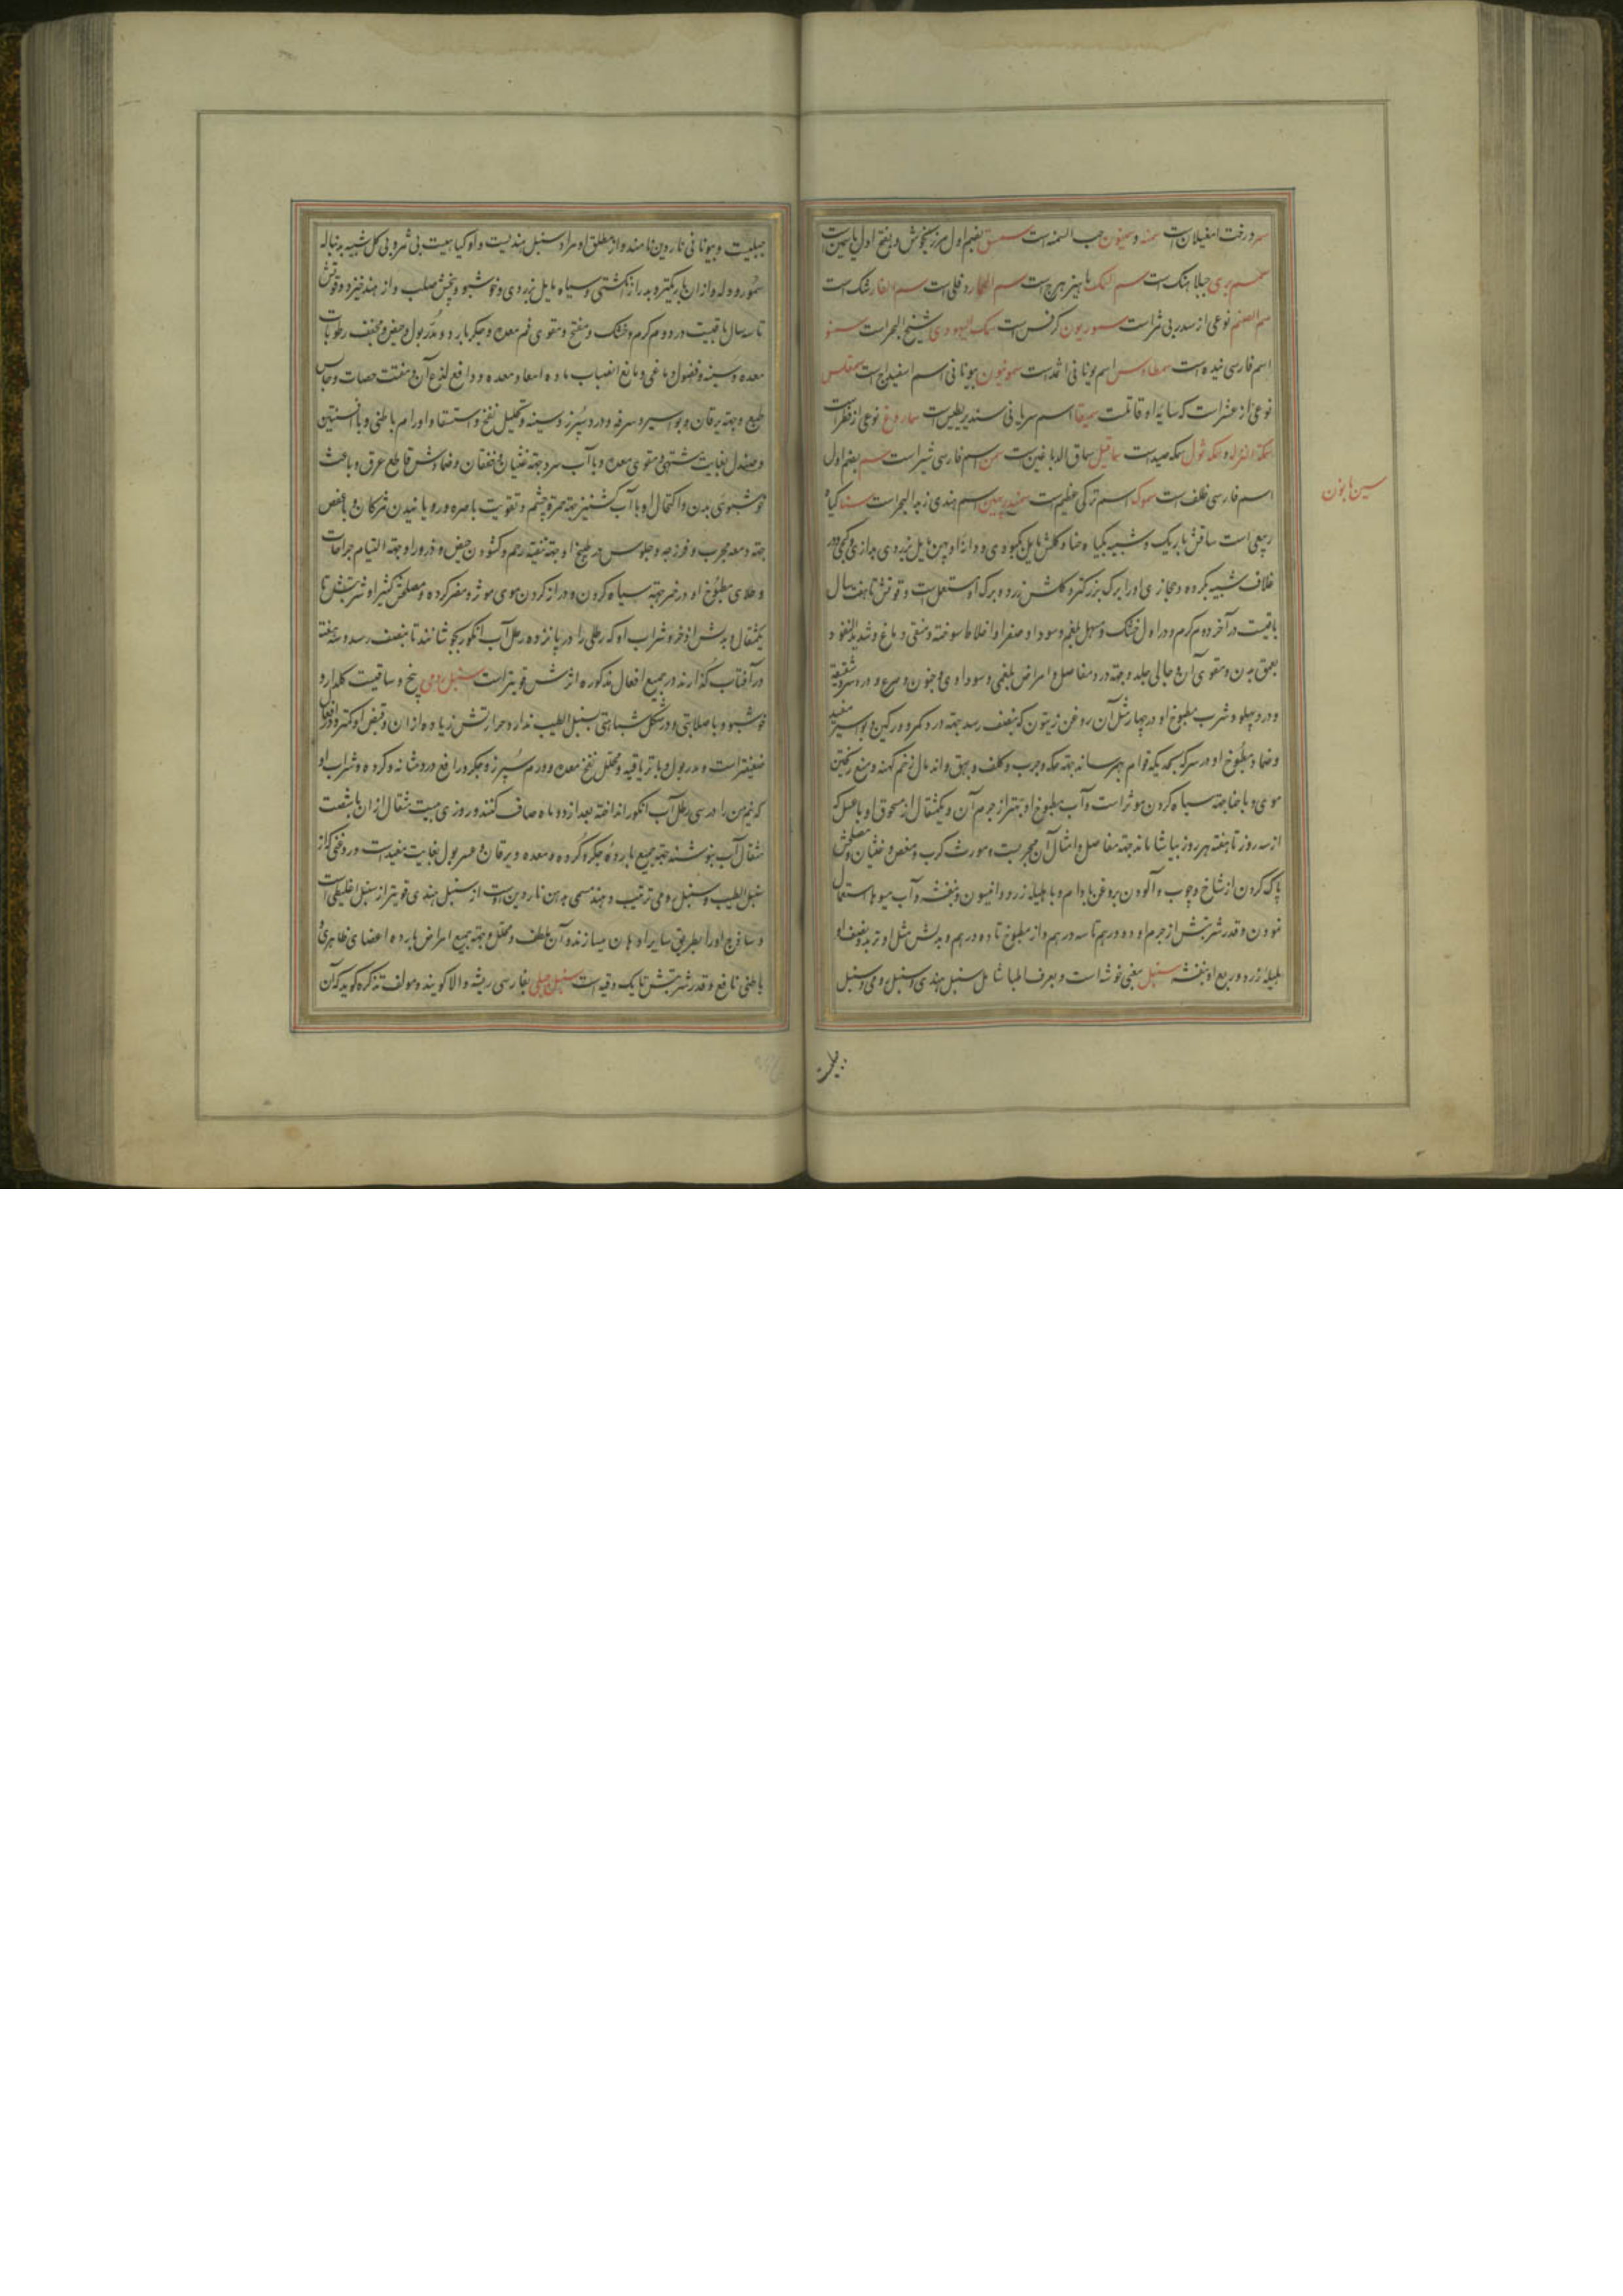 سمر درخت امغیلان است سمنه و سمنون حب السمنه است سمسق بضم اول مرزنجوش و بفتح اول یاسمین است
سمسم بری جبلاهنک است سم السمک ماهیزهرج است سم الحمار دفلی است سم الفار شک است
نوعی از سدر بی ثمر است سموریون کرفس است سمک الیهودی شیخ البحر است سمنو
اسم فارسی نیده است اسم یونانی اثمد است سمونیون بیونانی اسم اسفیداج است سمقلس
نوعی از عشر است که سایه او قاتلست سمیقا اسم سریانی سندریطیس است سماروغ نوعی از فطر است
سمکه صیداست سماقیل سماق الدباغین است سمن اسم فارسی شبر است سم بضم اول
سین با نون
اسم فارسی ظلف است سموک اسم ترکی عظیم است اسم هندی زبد البحر است سنا کیاه
ربیعی است ساقش باریک و شبیه بکیاه حنا و کلش مایل بکبودی و دانه او پهن مایل بزردی و درازی و کجی و در
غلاف شبیه بکرده و حجازی او را برک بزرکتر و کلش زرد و برک او مستعمل است و قوتش تا هفت سال
باقیست در آخر دوم کرم و در اول خشک و مسهل بلغم و سودا و صفرا و اخلاط سوخته و منقی دماغ و شدید النفوذ
بعمق بدن و مقوی آن و جالی جلد و جهة درد مفاصل و امراض بلغمی و سوداوی و جنون و صرع و درد سر و شقیقه
و درد پهلو و شرب مطبوخ او در چهار مثل آن روغن زیتون که بنصف رسد جهة درد کمر و ورکین و بواسیر مفید
و ضماد مطبوخ او در سرکه بحدیکه قوام بهم رساند جهة حکه و جرب و کلف و بهق و اندمال زخم کهنه و منع ریختن
موی و با حنا جهة سیاه کردن مو موثر است و آب مطبوخ او بهتر از جرم آن و یکمثقال از مسحوق او با عسل که
از سه روز تا هفته هر روز بیاشامند جهة مفاصل و امثال آن مجربست و مورث کرب و مغص و غثیان و مصلحش
پاک کردن از شاخ و چوب و آلودن بروغن بادام و با هلیله زرد و انیسون و بنفشه و آب میوها استعمال
نمودن و قدر شربتش از جرم او دو درهم تا سه درهم و از مطبوخ تا ده درهم و بدلش مثل او تربد و نصف او
هلیله زرد و ربع او بنفشه سنبل بمعنی خوشه است و بعرف اطبا شامل سنبل هندی و سنبل رومی و سنبل
جبلیست
جبلیست و بیونانی ناردین نامند و از مطلق او مراد سنبل هندیست و او کیاهیست بی ثمر و بی کل شبیه بدنباله
سمور و دله و از ان باریکتر و بدرازی انکشتی و سیاه مایل بزردی و خوشبو و بیخش صلب و از هند خیزد و قوتش
تا سه سال باقیست در دوم کرم و خشک و مفتح و مقوی فم معده و جکر بارد و مدر بول و حیض و مجفف رطوبات
معده و سینه و فضول دماغی و مانع انصباب ماده امعا و معده و دافع لذع آن و مفتت حصات و حابس
طبع و جهة یرقان و بواسیر و سرفه و درد سپرز و سینه و تحلیل نفخ و استسقا و اورام باطنی و با افسنتین
و صندل بغایت مشتهی و مقوی معده و با آب سرد جهة غثیان و خفقان و ضمادش قاطع عرق و باعث
خوشبوئی بدن و اکتحال او با آب کشنیز جهة حمرة چشم و تقویت باصره و رویانیدن مژکان و با عفص
جهة دمعه مجرب و فرزجه و جلوس در طبیخ او جهة تنقیه رحم و کشودن حیض و ذرور او جهة التیام جراحات
و طلای مطبوخ او در خمر جهة سیاه کردن و دراز کردن موی موثر و مضر کرده و مصلحش کثیرا و شربتش تا
یکمثقال و بدلش اذخر و شراب او که رطلی را در پانزده رطل آب انکور بجوشانند تا بنصف رسد و سه هفته
در آفتاب کذارند در جمیع افعال مذکوره اثرش قویتر است سنبل رومی بیخ و ساقیست کلدار و
خوشبو و با صلابتی و در شکل شباهتی بسنبل الطیب ندارد حرارتش زیاده از ان و قبض او کمتر و در افعال
ضعیفتر است و مدر بول و با تریاقیه و محلل نفخ معده و ورم سپرز و جکر و رافع درد مثانه و کرده و شراب او
که نیم من را در سی رطل آب انکور انداخته بعد از دو ماه صاف کنند و روزی بیست مثقال از ان با شصت
مثقال آب بنوشند جهة جمیع بارده جکر و کرده و معده و یرقان و عسر بول بغایت مفید است و روغنی که از
سنبل الطیب و سنبل رومی ترتیب دهند مسمی بدهن ناردین است از سنبل هندی قویتر از سنبل اقلیطی است
و ساذج او را بطریق سایر ادهان میسازند و آن ملطف و محلل و جهة جمیع امراض بارده اعضای ظاهری و
باطنی نافع و قدر شربتش تا یک وقیه است سنبل جبلی بفارسی ریشه والا کویند و مولف تذکره کوید که آن